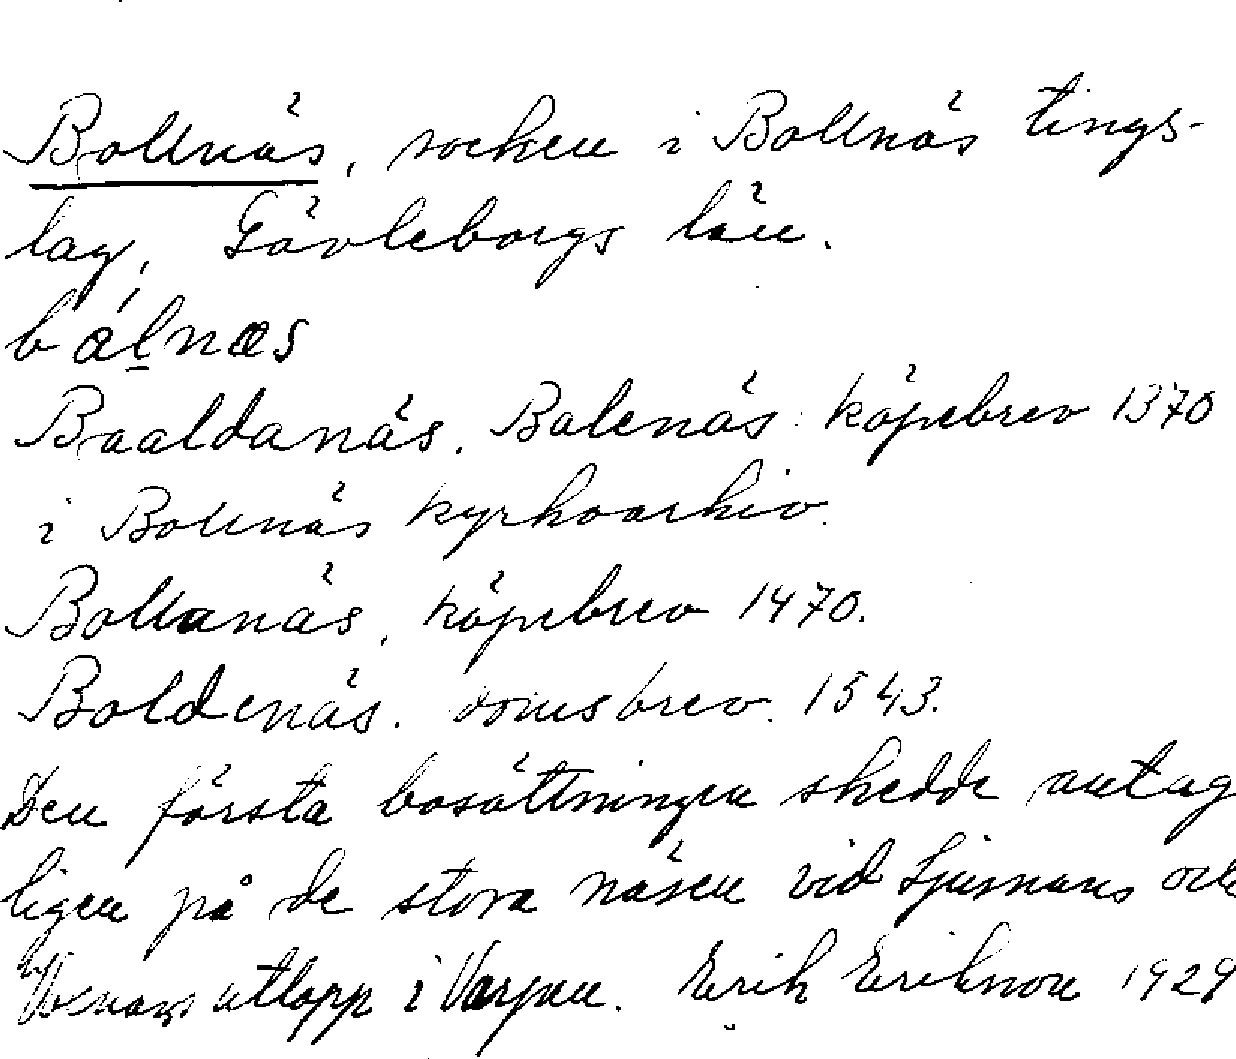 Bollnäs, socken i Bollnäs tings-
lag, Gävleborgs län.
bálnæs
Baaldanäs. Balenäs: köpebrev 1370
i Bollnäs kyrkoarkiv.
Bollanäs, köpebrev 1470.
Boldenäs. domsbrev. 1543.
Den första bosättningen skedde antag
ligen på de stora näsen vid Ljusnans och
Voxnans utlopp i Varpen. Erik Eriksson 1929